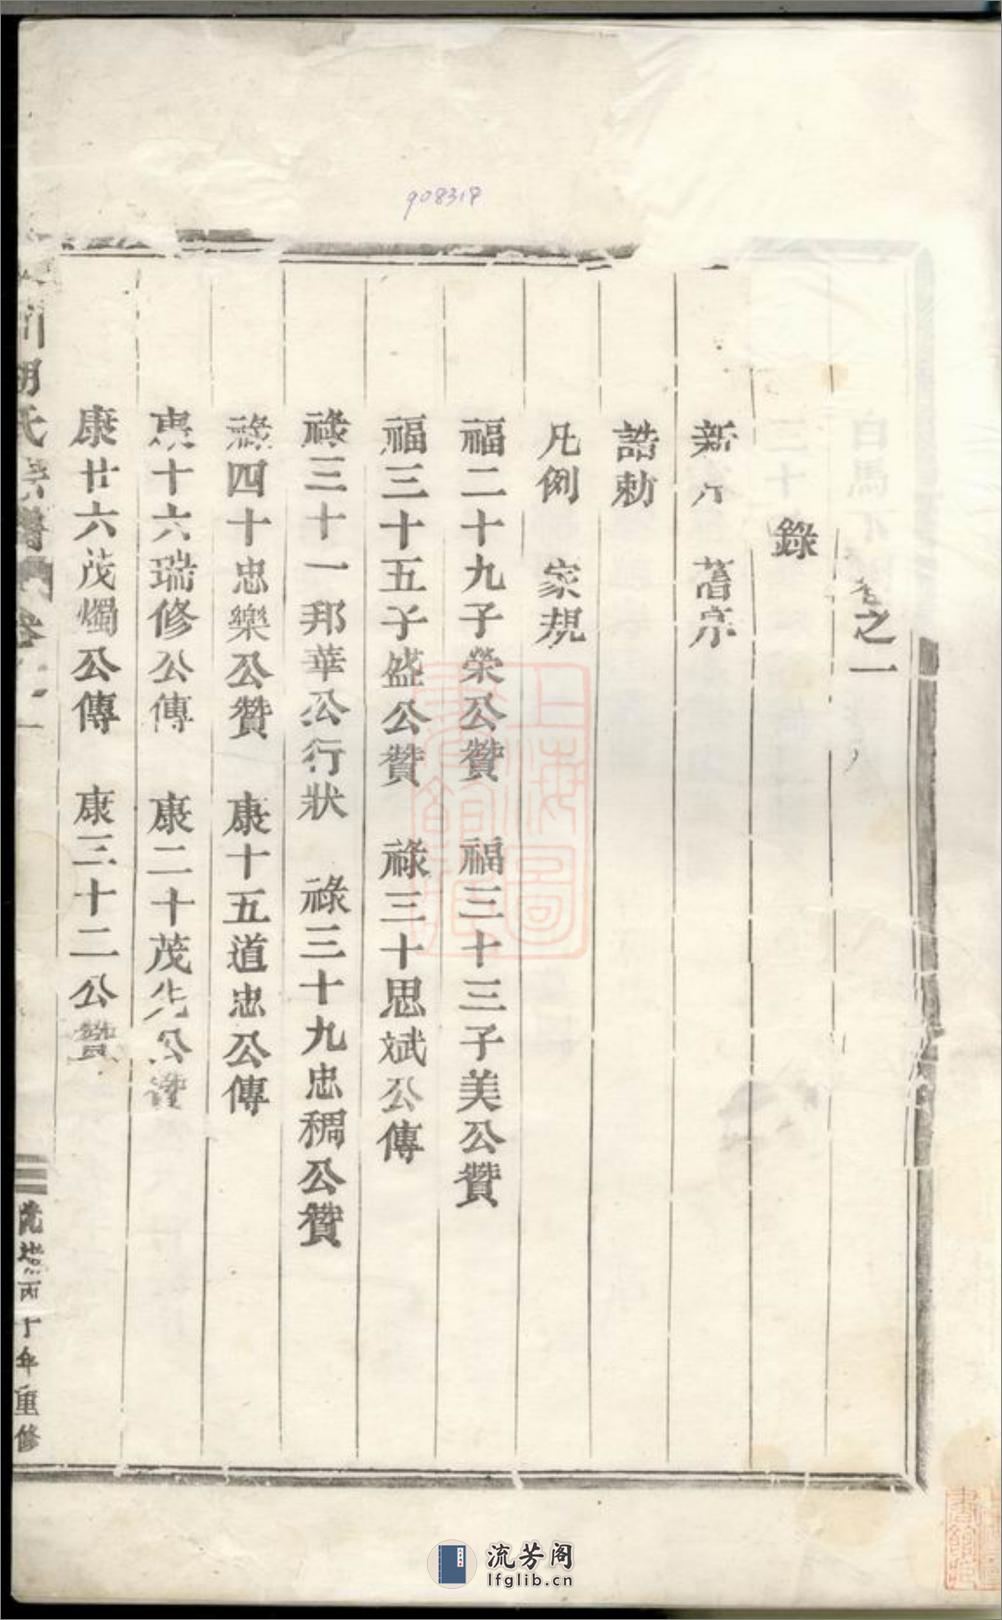 908318
卷之一
錄
新序 舊序
誥勅
凡例 家規
福二十九子榮公贊 福三十三子美公贊
福三十五子盛公贊 祿三十思斌公傳
祿三十一邦華公行狀 祿三十九忠稠公贊
祿四十忠樂公贊 康十五道忠公傳
康十六瑞修公傳 康二十茂先公贊
康廿六茂燭公傳 康三十二公贊
胡氏宗譜 卷 一
年重修
上海圖書館藏
流芳阁
lfglib.cn